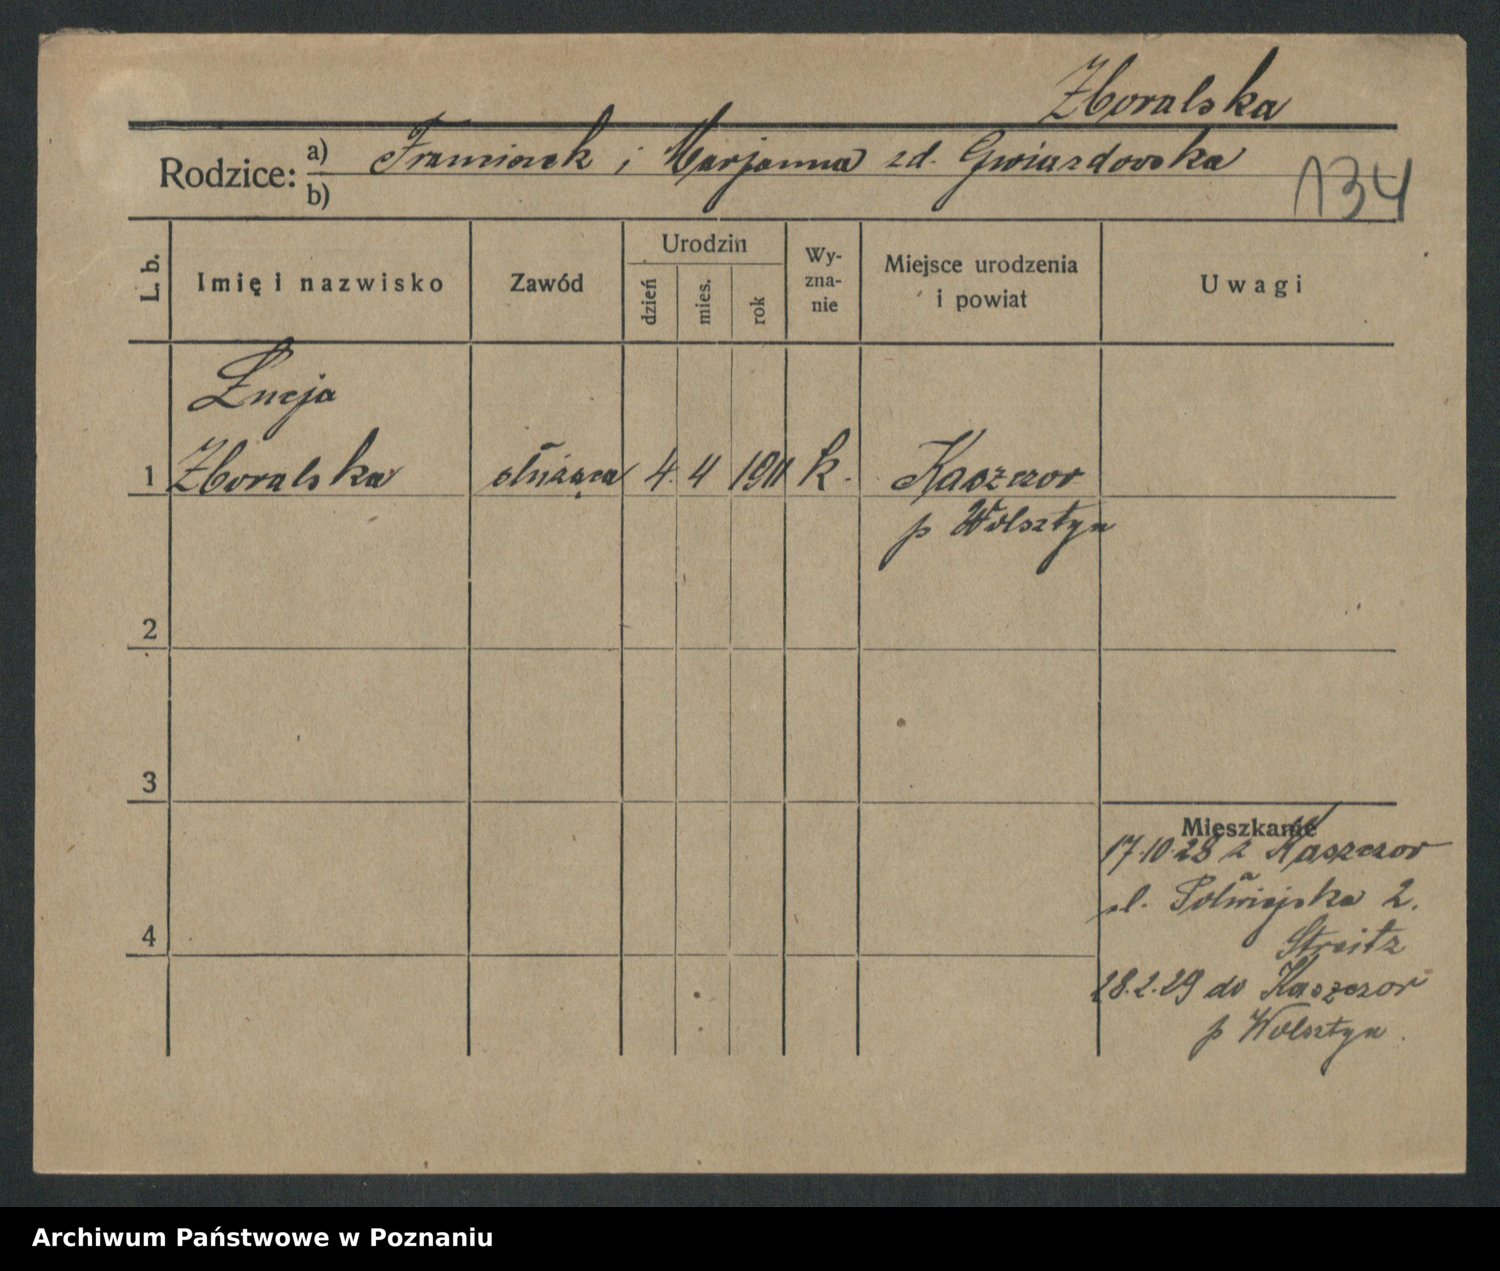 Zboralska
Rodzice: a) Franciszek i Marjanna zd. Gwiazdowska
b)
134
L. b.
Imię i nazwisko
Zawód
Urodzin
dzień
mies.
rok
Wy-
zna-
nie
Miejsce urodzenia
i powiat
Uwagi
Łucja
1 Zboralska służąca 4. 4 1911 k. Kaszczor
p Wolsztyn
2
3
4
Mieszkanie
17.10.28 z Kaszczor
ul. Półwiejska 2.
Streitz
28.2.29 do Kaszczor
p Wolsztyn.
Archiwum Państwowe w Poznaniu